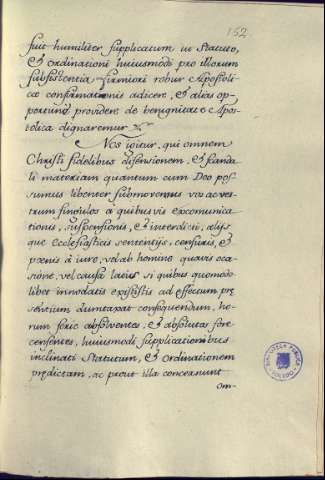 152
fuit humiliter supplicatum ut Statuto,
& ordinationi huiusmodi pro illorum
subsistentia firmiori robur Apostoli-
cæ confirmationis adicere, & alias op-
portune providere de benignitate Apos-
tolica dignaremur
Nos igitur, qui omnem
Christi fidelibus disensionem, & scanda-
li materiam quantum cum Deo pos-
sumus libenter submovemus vos ac ves-
trum singulos à quibusvis excomunica-
tionis, suspensionis, & interdicti, aliis
que Ecclesiasticis sententijs, censuris, &
pœnis à iure, vel ab homine quavis oca-
sione, vel causa latis si quibus quomodo
libet innodatis exististis ad effectum prę
sentium dumtaxat consequendum, ho-
rum serie absolventes, & absolutas fore
censentes, huiusmodi supplicationibus
inclinati Statutum, & ordinationem
prędictam, ac prout illa concernunt
om-
BIBLIOTECA PUBLICA
TOLEDO